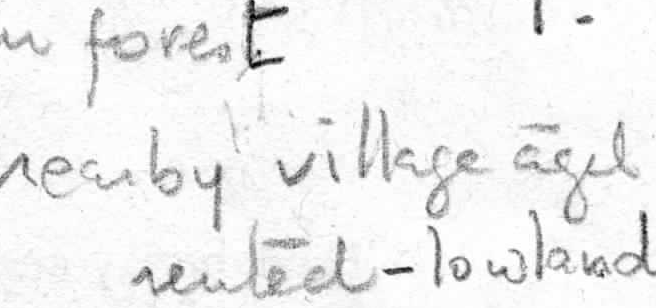 forest
nearby village āgel
rentēd - lowland